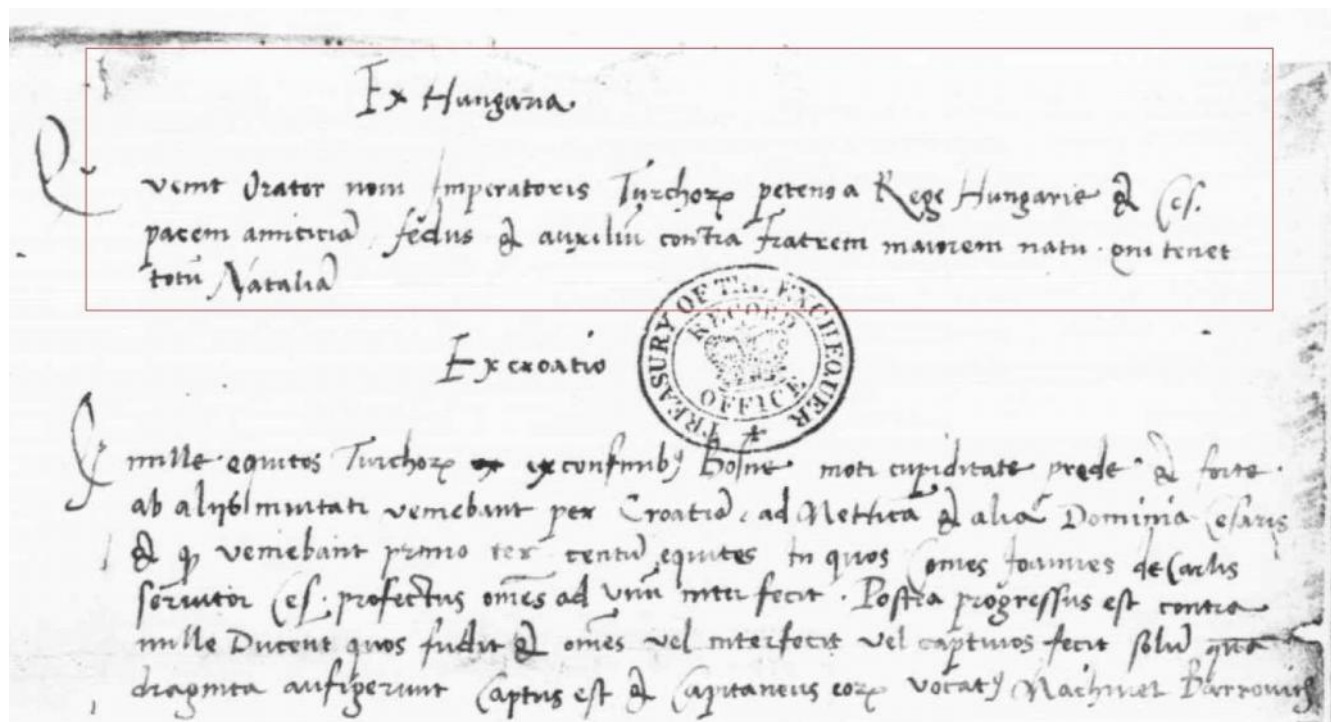 Ex Hungaria
venit Orator novi Imperatoris Turchorꝝ petens a Rege Hungarie & Ces.
pacem amiciciā, fędus & auxiliū contra fratrem maiorem natu. qui tenet
totū Nataliā
TREASURY OF THE EXCHEQUER
RECORD
OFFICE
Ex croatia
mille equites Turchorꝝ ex confinibꝰ Bosne moti cupiditate prede & forte
ab alijs invitati veniebant per Croatiā, ad Metticā & alia Dominia Cesaris
& veniebant primo ter centū equites in quos Comes Joannes de
servitor Ces. profectus om̄es ad vnū interfecit. Postea progressus est contra
mille Ducent quos fudit & om̄es vel interfecit vel captivos fecit solū qua
draginta aufugerunt Captus est & Capitaneus eorꝝ vocatꝰ